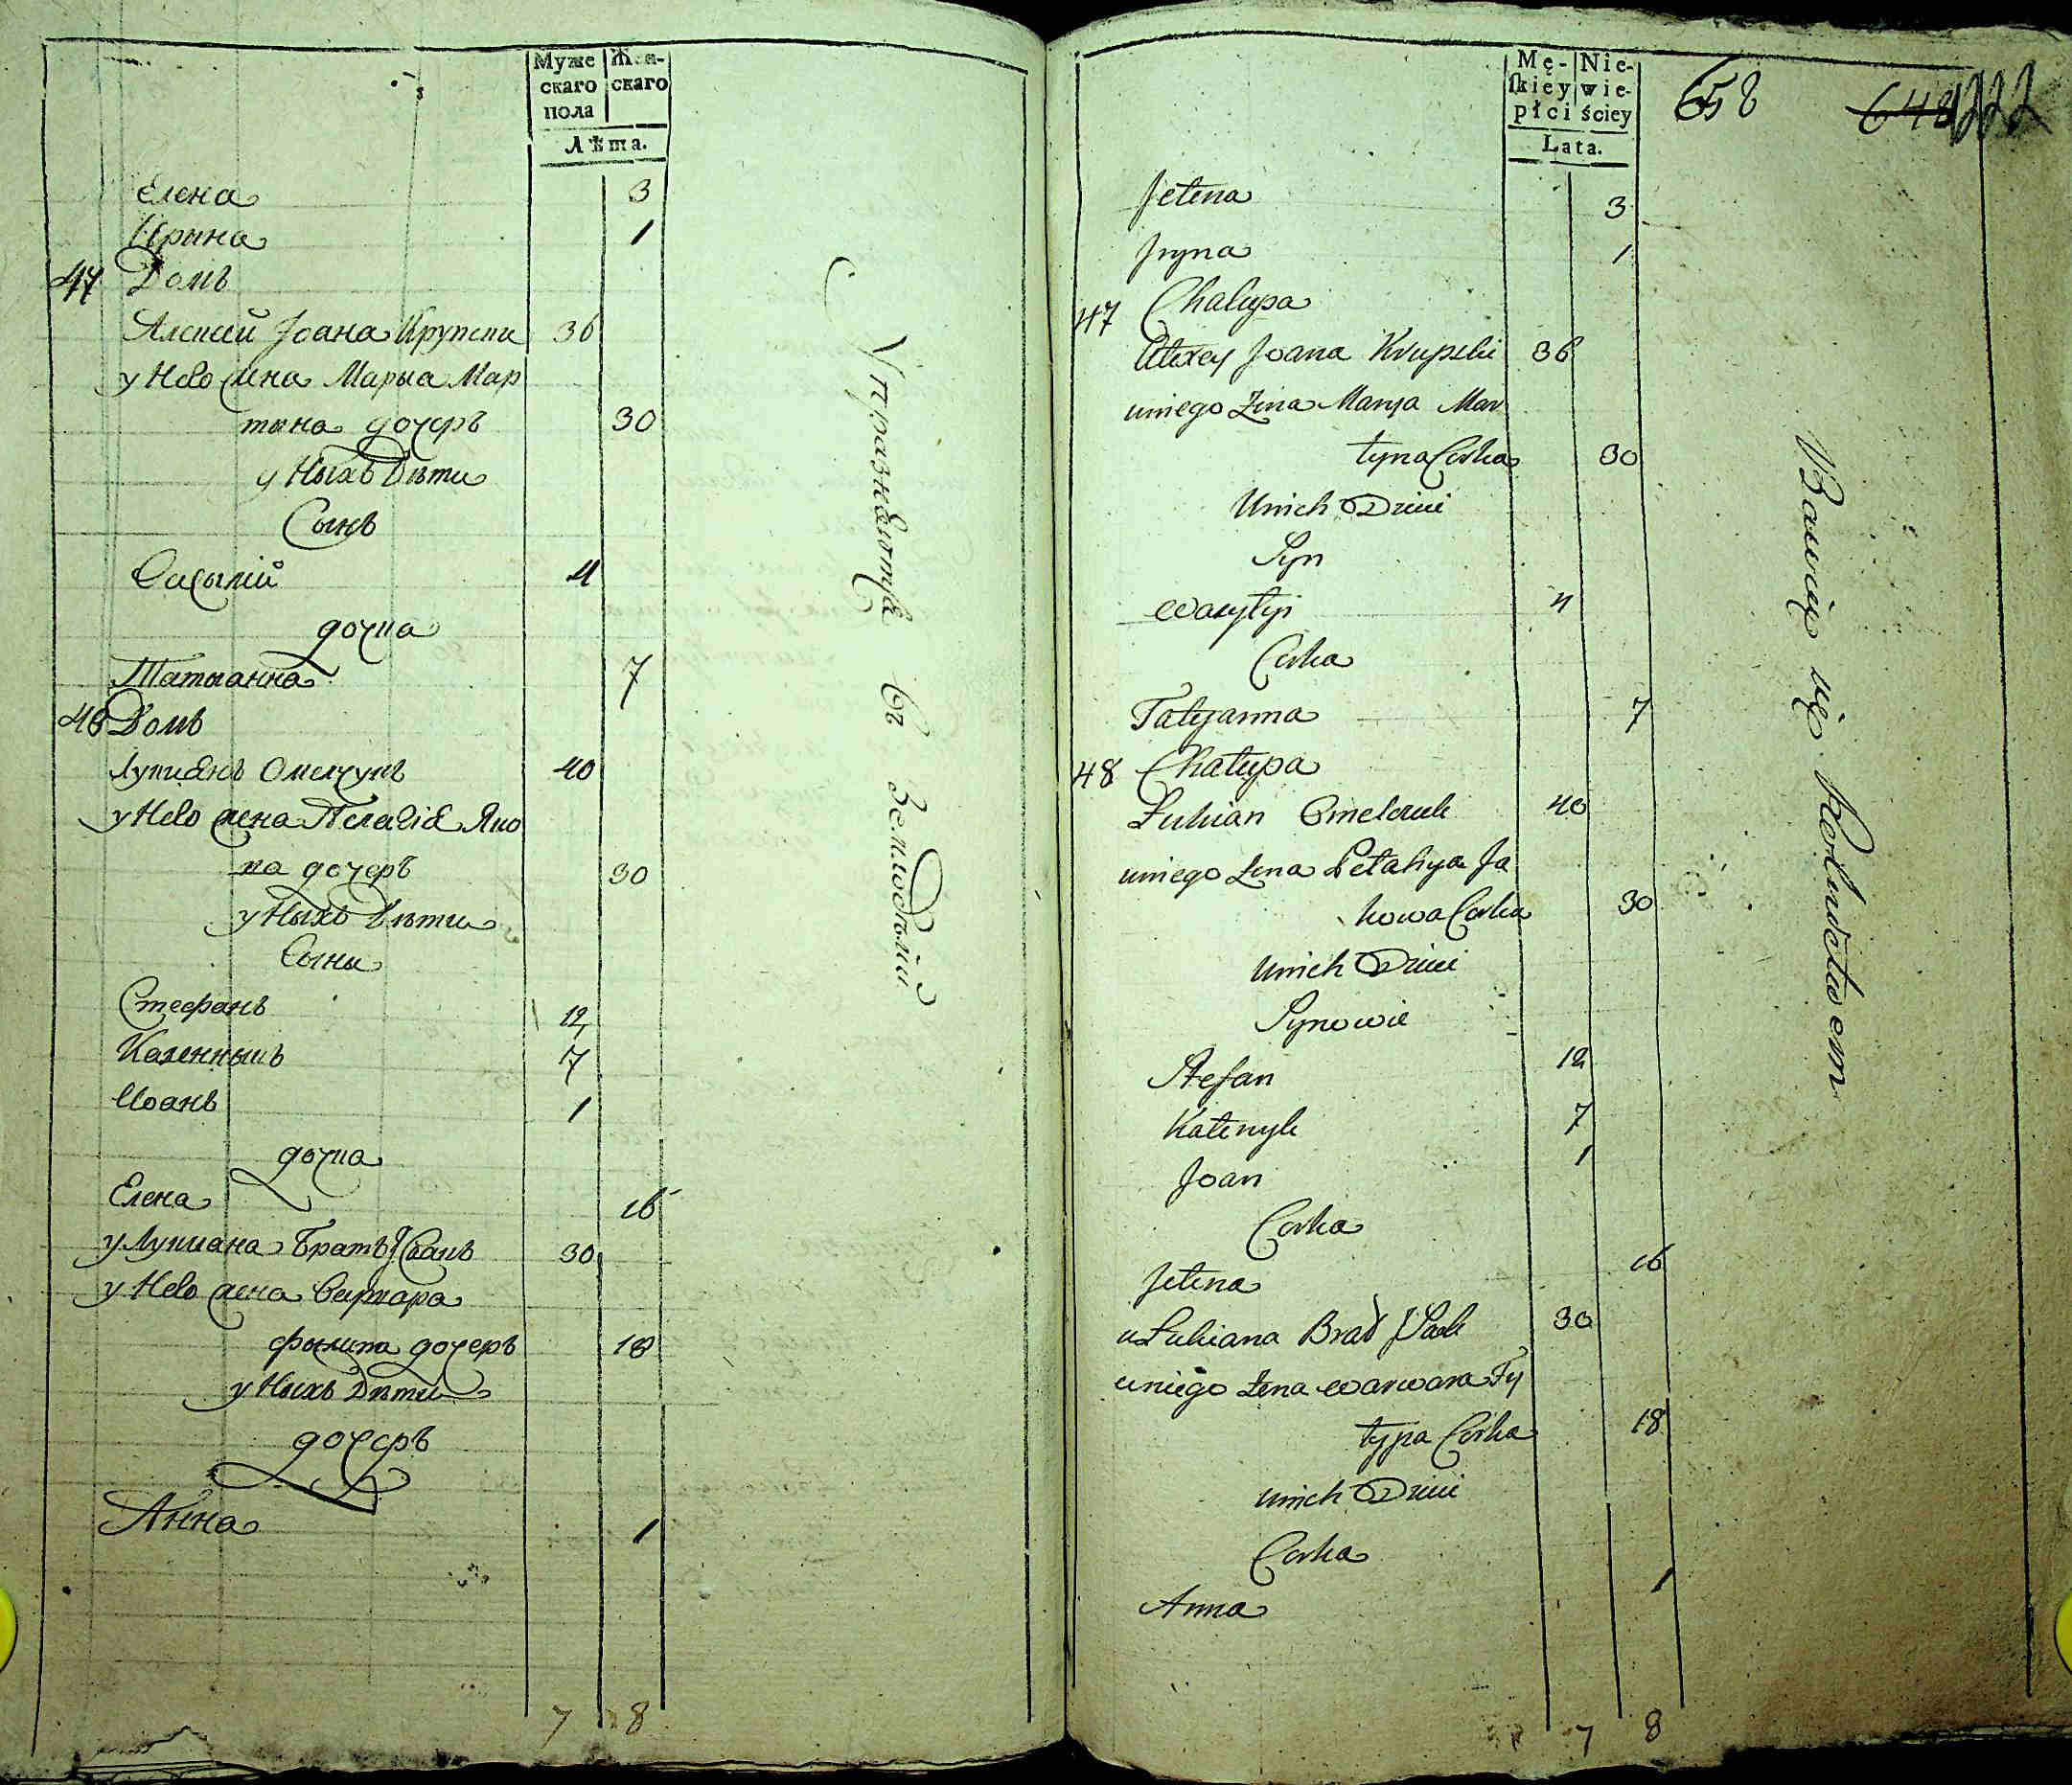 Муже
скаго
пола
Жен-
скаго
Лѣта.
Елена 3
Ирына 1
47 Домъ
Алексей Јоана Крупски 36
у Него жена Марыа Мар
тына дочеръ 30
у Ныхъ Дѣти
Сынъ
Василій 4
дочка
Татыанна 7
48 Домъ
Лукиянъ Омелчукъ 40
у Него жена Пелагія Яко
ва дочеръ 30
у Ныхъ Дѣти
Сыны
Стефанъ 12
Каленныкъ 7
Иоанъ 1
дочка
Елена 16
у Лукиана Братъ Исаакъ 30
у Него жена Варвара
Фылипа дочеръ 18
у Ныхъ Дѣти
дочеръ
Анна 1
7 8
Упражняютця въ Земледѣліи
Mę-
skiey
płci
Nie-
wie-
ściey
Lata.
658
648
222
Jełena 3
Jryna 1
47 Chałupa
Alexey Joana Krupski 36
uniego Żena Marya Mar
tyna Corka 30
Unich Dzieci
Syn
Wasylyi 4
Corka
Tatyanna 7
48 Chałupa
Łukian Omelczuk 40
uniego Żena Pełahya Ja
kowa Corka 30
Unich Dzieci
Synowie
Stefan 12
Kałenyk 7
Joan 1
Corka
Jełena 16
u Łukiana Brat JSaak 30
uniego Żena Warwara Fy
łypa Corka 18
unich Dzieci
Corka
Anna 1
7 8
Bawią się Rolnictwem